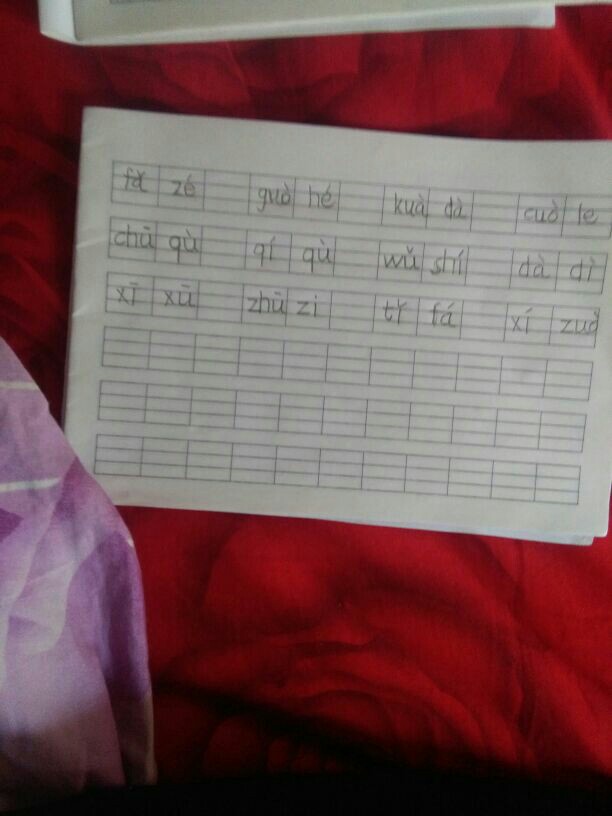 fǎ zé guò hé kuà dà cuò le
chū qù qí qù wǔ shí dà dì
xī xū zhū zi tǐ fá xí zuò